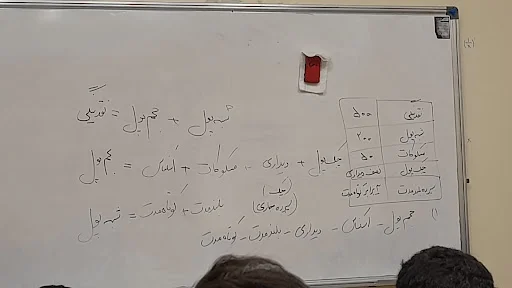 نقدینگی ۵۰۰
شبه پول ۲۰۰
مسکوکات ۵۰
چک پول نصف دیداری
سپرده بلندمدت ۲ برابر کوتاه مدت
نقدینگی = حجم پول + شبه پول
حجم پول = اسکناس + مسکوکات + دیداری + چک پول
(چک)
(سپرده جاری)
شبه پول = کوتاه مدت + بلندمدت
۱) حجم پول - اسکناس - دیداری - بلندمدت - کوتاه مدت